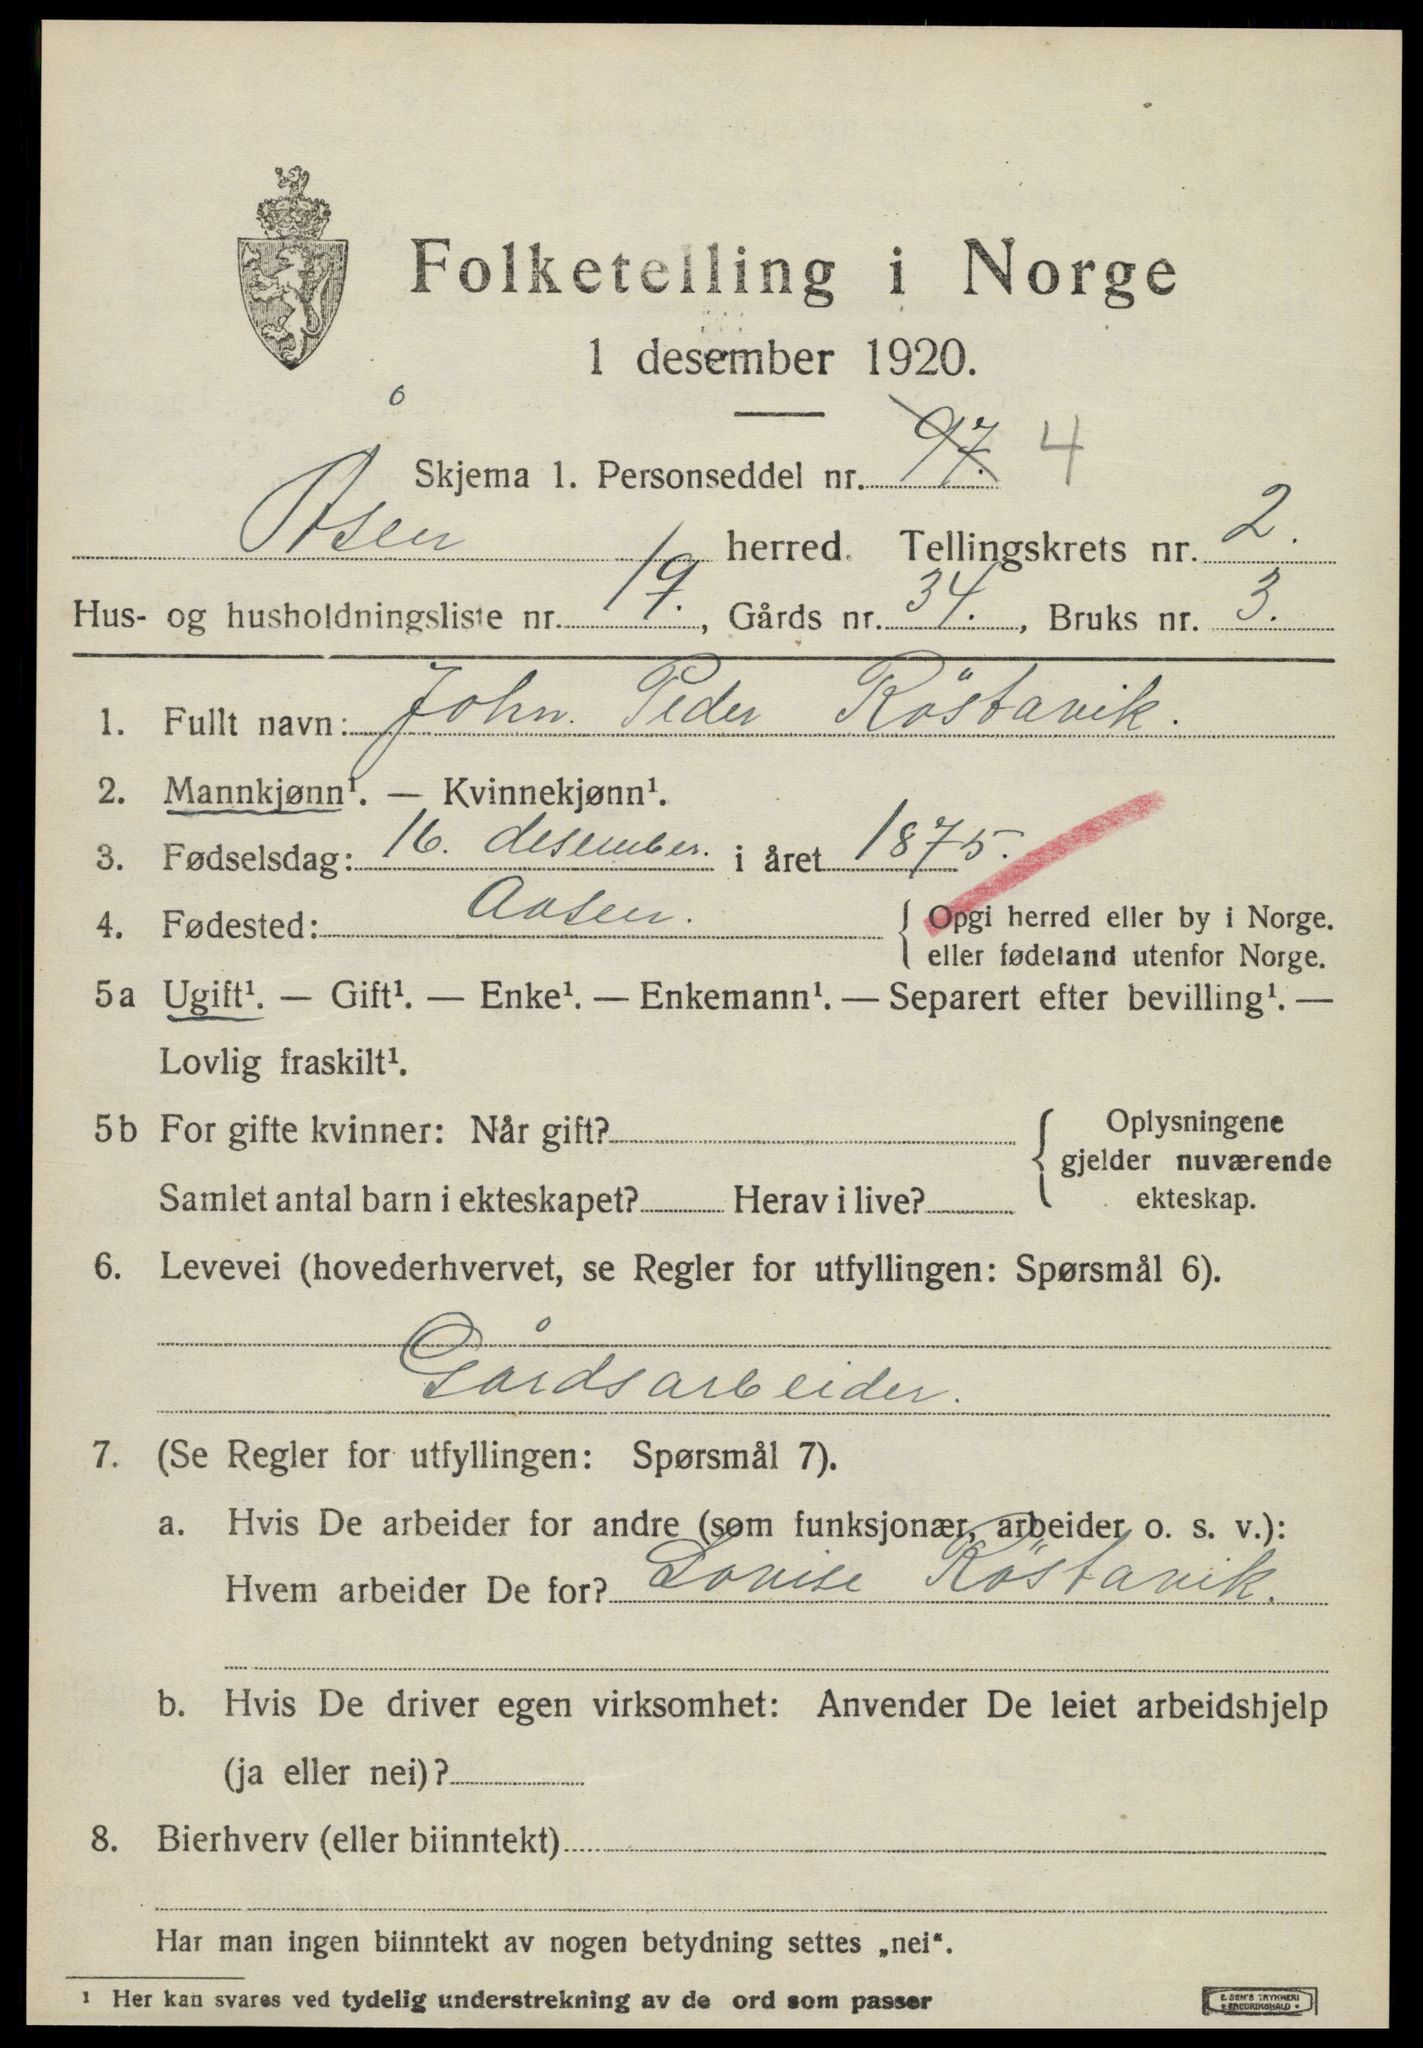 Folketelling i Norge
1 desember 1920.
Skjema 1. Personseddel nr. 97. 4
Åsen herred. Tellingskrets nr. 2.
Hus- og husholdningsliste nr. 19., Gårds nr. 34., Bruks nr. 3.
1. Fullt navn: John. Peder Röstavik.
2. Mannkjønn¹. — Kvinnekjønn¹.
3. Fødselsdag: 16. desember. i året 1875.
4. Fødested: Aasen. { Opgi herred eller by i Norge.
eller fødeland utenfor Norge.
5a Ugift¹. — Gift¹. — Enke¹. — Enkemann¹. — Separert efter bevilling¹. —
Lovlig fraskilt¹.
5b For gifte kvinner: Når gift? { Oplysningene
gjelder nuværende
Samlet antal barn i ekteskapet? Herav i live? ekteskap.
6. Levevei (hovederhvervet, se Regler for utfyllingen: Spørsmål 6).
Gårdsarbeider.
7. (Se Regler for utfyllingen: Spørsmål 7).
a. Hvis De arbeider for andre (som funksjonær, arbeider o. s. v.):
Hvem arbeider De for? Lovise Röstavik.
b. Hvis De driver egen virksomhet: Anvender De leiet arbeidshjelp
(ja eller nei)?
8. Bierhverv (eller biinntekt)
Har man ingen biinntekt av nogen betydning settes „nei“.
¹ Her kan svares ved tydelig understrekning av de ord som passer
E. SEM'S TRYKKERI
FREDRIKSHALD